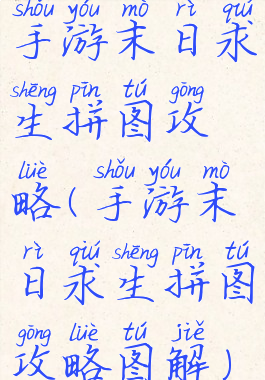 shǒu yóu mò rì qiú
手游末日求
shēng pīn tú gōng
生拼图攻
lüè shǒu yóu mò
略(手游末
rì qiú shēng pīn tú
日求生拼图
gōng lüè tú jiě
攻略图解)